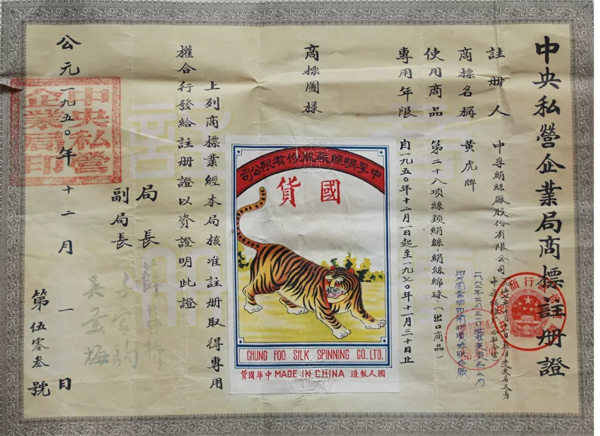 中央私營企業局商標註冊證
註冊人 中孚絹絲廠股份有限公司
商標名稱 黃虎牌
使用商品 第二十八項絲類絹絲、絹絲綿球（出口商品）
專用年限 自一九五〇年十二月一日起至一九七〇年十一月三十日止
商標圖樣
中孚絹絲廠股份有限公司
國貨
CHUNG FOO SILK SPINNING CO. LTD.
國人製造 MADE IN CHINA 中華國貨
上列商標業經本局核准註冊取得專用
權合行發給註冊證以資證明此證
局長
副局長
公元一九五〇年十二月一日
第伍零叁號
中央私營企業局印